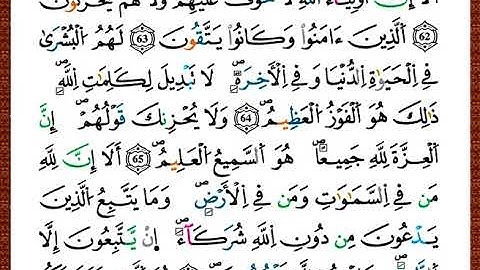 أَلَآ إِنَّ أَوْلِيَآءَ ٱللَّهِ لَا خَوْفٌ عَلَيْهِمْ وَلَا هُمْ يَحْزَنُونَ
٦٢ ٱلَّذِينَ ءَامَنُوا۟ وَكَانُوا۟ يَتَّقُونَ ٦٣ لَهُمُ ٱلْبُشْرَىٰ
فِى ٱلْحَيَوٰةِ ٱلدُّنْيَا وَفِى ٱلْأَخِرَةِ ۚ لَا تَبْدِيلَ لِكَلِمَـٰتِ ٱللَّهِ ۚ
ذَٰلِكَ هُوَ ٱلْفَوْزُ ٱلْعَظِيمُ ٦٤ وَلَا يَحْزُنكَ قَوْلُهُمْ ۘ إِنَّ
ٱلْعِزَّةَ لِلَّهِ جَمِيعًا ۚ هُوَ ٱلسَّمِيعُ ٱلْعَلِيمُ ٦٥ أَلَآ إِنَّ لِلَّهِ
مَن فِى ٱلسَّمَـٰوَٰتِ وَمَن فِى ٱلْأَرْضِ ۗ وَمَا يَتَّبِعُ ٱلَّذِينَ
يَدْعُونَ مِن دُونِ ٱللَّهِ شُرَكَآءَ ۚ إِن يَتَّبِعُونَ إِلَّا